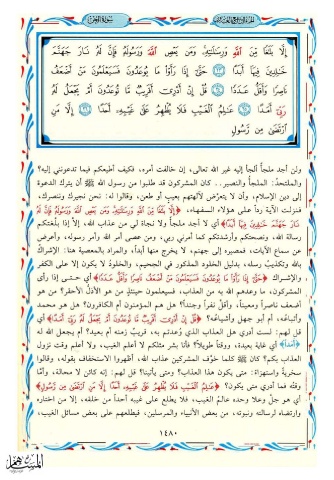 الجزء التاسع والعشرون
سورة الجن
إِلَّا بَلَٰغًا مِّنَ ٱللَّهِ وَرِسَٰلَٰتِهِۦ ۚ وَمَن يَعْصِ ٱللَّهَ وَرَسُولَهُۥ فَإِنَّ لَهُۥ نَارَ جَهَنَّمَ
خَٰلِدِينَ فِيهَآ أَبَدًا ﴿٢٣﴾ حَتَّىٰٓ إِذَا رَأَوْا۟ مَا يُوعَدُونَ فَسَيَعْلَمُونَ مَنْ أَضْعَفُ
نَاصِرًا وَأَقَلُّ عَدَدًا ﴿٢٤﴾ قُلْ إِنْ أَدْرِىٓ أَقَرِيبٌ مَّا تُوعَدُونَ أَمْ يَجْعَلُ لَهُۥ
رَبِّىٓ أَمَدًا ﴿٢٥﴾ عَٰلِمُ ٱلْغَيْبِ فَلَا يُظْهِرُ عَلَىٰ غَيْبِهِۦٓ أَحَدًا ﴿٢٦﴾ إِلَّا مَنِ
ٱرْتَضَىٰ مِن رَّسُولٍ
ولن أجد ملجأ ألجأ إليه غير الله تعالى، إن خالفت أمره، فكيف أطيعكم فيما تدعونني إليه؟
والملتحد: الملجأ والنصير.. كان المشركون قد طلبوا من رسول الله ﷺ أن يترك الدعوة
إلى دين الإسلام، وأن لا يتعرض لآلهتهم بعيب أو طعن، وقالوا له: نحن نجيرك وننصرك،
فنزلت الآية رداً على هؤلاء السفهاء، ﴿إِلَّا بَلَٰغًا مِّنَ ٱللَّهِ وَرِسَٰلَٰتِهِۦ وَمَن يَعْصِ ٱللَّهَ وَرَسُولَهُۥ فَإِنَّ لَهُۥ
نَارَ جَهَنَّمَ خَٰلِدِينَ فِيهَآ أَبَدًا﴾ أي لا أجد ملجأ ولا نجاة لي من عذاب الله، إلا إذا بلغتكم
رسالة الله، ونصحتكم وأرشدتكم كما أمرني ربي، ومن عصى أمر الله وأمر رسوله، وأعرض
عن سماع الآيات، فمصيره إلى جهنم، لا يخرج منها أبداً، والمراد بالمعصية هنا: الإشراك
بالله وتكذيب رسله، بدليل الخلود المذكور في الجحيم، والخلود لا يكون إلا على الكفر
والإشراك ﴿حَتَّىٰٓ إِذَا رَأَوْا۟ مَا يُوعَدُونَ فَسَيَعْلَمُونَ مَنْ أَضْعَفُ نَاصِرًا وَأَقَلُّ عَدَدًا﴾ أي حتى إذا رأى
المشركون، ما وعدهم الله به من العذاب، فسيعلمون حينئذ من هو الأذل الأحقر؟ من هو
أضعف ناصراً ومعيناً، وأقل نفراً وجنداً؟ هل هم المؤمنون أم الكافرون؟ هل هو محمد
وأتباعه، أم أبو جهل وأشياعه؟ ﴿قُلْ إِنْ أَدْرِىٓ أَقَرِيبٌ مَّا تُوعَدُونَ أَمْ يَجْعَلُ لَهُۥ رَبِّىٓ أَمَدًا﴾ أي
قل لهم: لست أدري هل العذاب الذي وُعدتم به، قريب زمنه أم بعيد؟ أم يجعل الله له
﴿أَمَدًا﴾ أي غاية بعيدة، ووقتاً طويلاً؟ فأنا بشر مثلكم لا أعلم الغيب، ولا أعلم وقت نزول
العذاب بكم؟ كان ﷺ كلما خوّف المشركين عذاب الله، أظهروا الاستخفاف بقوله، وقالوا
سخرية واستهزاء: متى يكون هذا العذاب؟ ومتى يأتينا؟ قل لهم: إنه كائن لا محالة، وأمّا
وقته فما أدري متى يكون؟ ﴿عَٰلِمُ ٱلْغَيْبِ فَلَا يُظْهِرُ عَلَىٰ غَيْبِهِۦٓ أَحَدًا إِلَّا مَنِ ٱرْتَضَىٰ مِن رَّسُولٍ﴾
أي هو جل وعلا وحده عالم الغيب، فلا يطلع على غيبه أحداً من خلقه، إلا من اختاره
وارتضاه لرسالته ونبوته، من بعض الأنبياء والمرسلين، فيطلعهم على بعض مسائل الغيب،
١٤٨٠